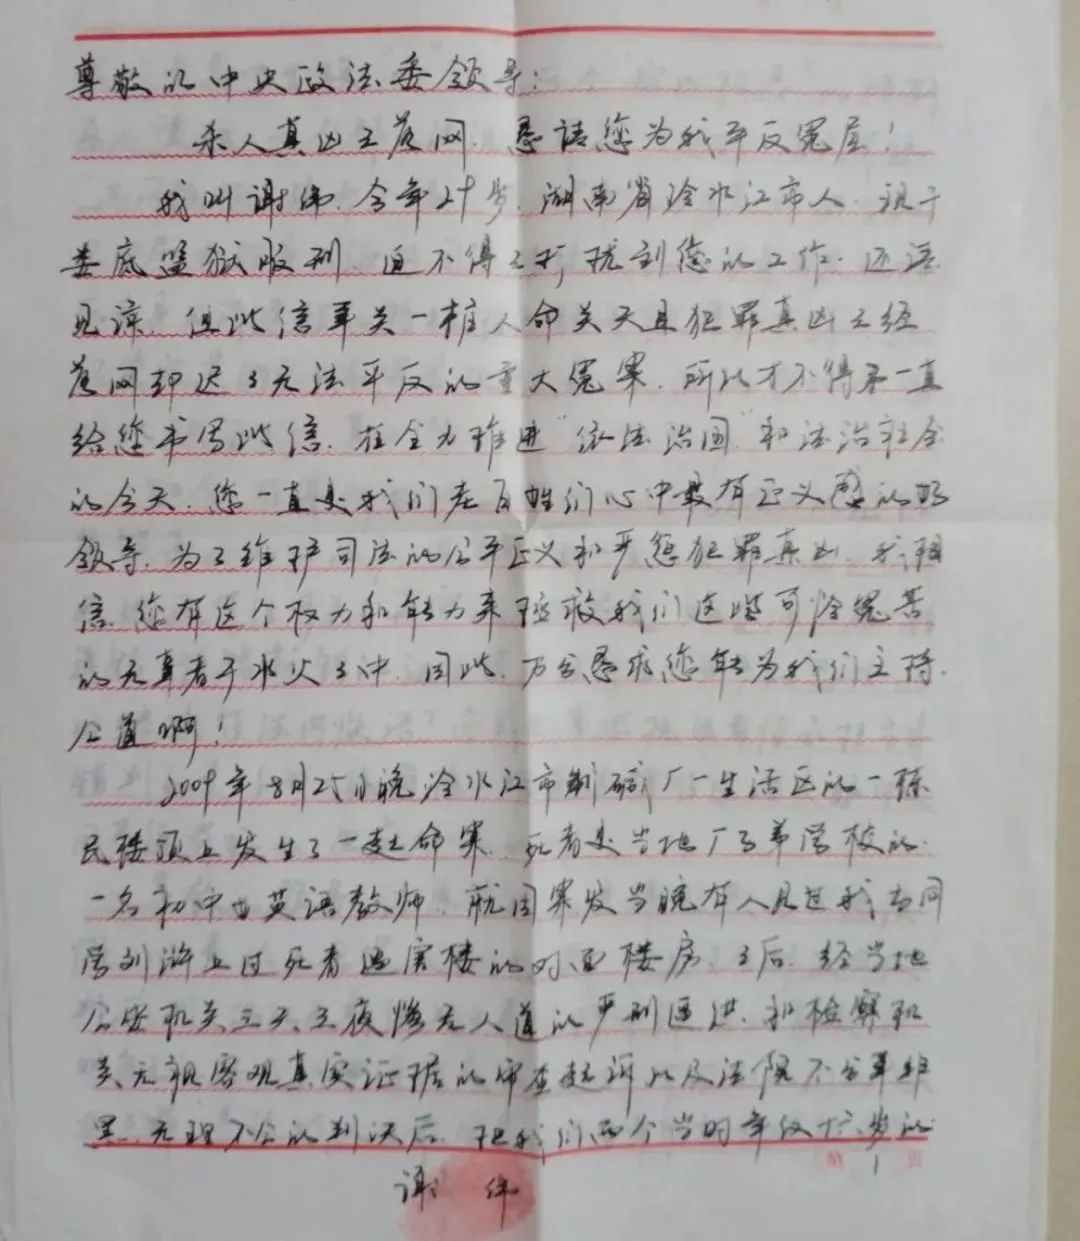 尊敬的中央政法委领导：
杀人真凶已落网，恳请您为我平反冤屈！
我叫谢伟，今年29岁，湖南省冷水江市人，现于
娄底监狱服刑，迫不得已打扰到您的工作，还请
见谅，但此信事关一桩人命关天且犯罪真凶已经
落网却迟迟无法平反的重大冤案，所以才不得不一直
给您书写此信，在全力推进“依法治国”和法治社会
的今天，您一直是我们老百姓们心中最有正义感的好
领导，为了维护司法的公平正义和严惩犯罪真凶，我相
信，您有这个权力和能力来拯救我们这些可怜冤苦
的无辜者于水火之中，因此，万分恳求您能为我们主持
公道啊！
2009年8月25日晚冷水江市制碱厂一生活区的一栋
民楼顶上发生了一起命案，死者是当地厂子弟学校的
一名初中女英语教师，就因案发当晚有人见过我和同
学刘浒上过死者遇害楼的对面楼房，之后，经当地
公安机关三天三夜惨无人道的严刑逼供，和检察机
关无视客观真实证据的审查起诉以及法院不分事非
黑，无理不公的判决后，把我们两个当时年仅十六岁的
1
谢伟